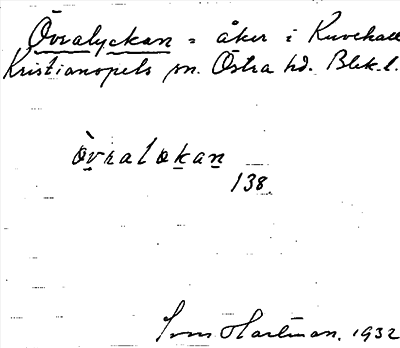 Övralyckan = åker i Kuvehall
Kristianopels sn. Östra hd. Blek. l.
òvralokan
138.
Sven Hartman. 1932